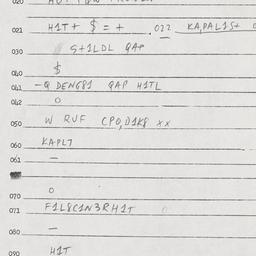 020
021 H1T+ $ = + . 022 KA,PAL15+
030 S+1LDL QAP
$
040
041 -Q DENG81 QAP H1TL
042 O
050 W RUF CPO,D1K8 XX
060 KAPL7
061 —
O
070
071 F1L8C1N3RH1T
080 —
090 H1T